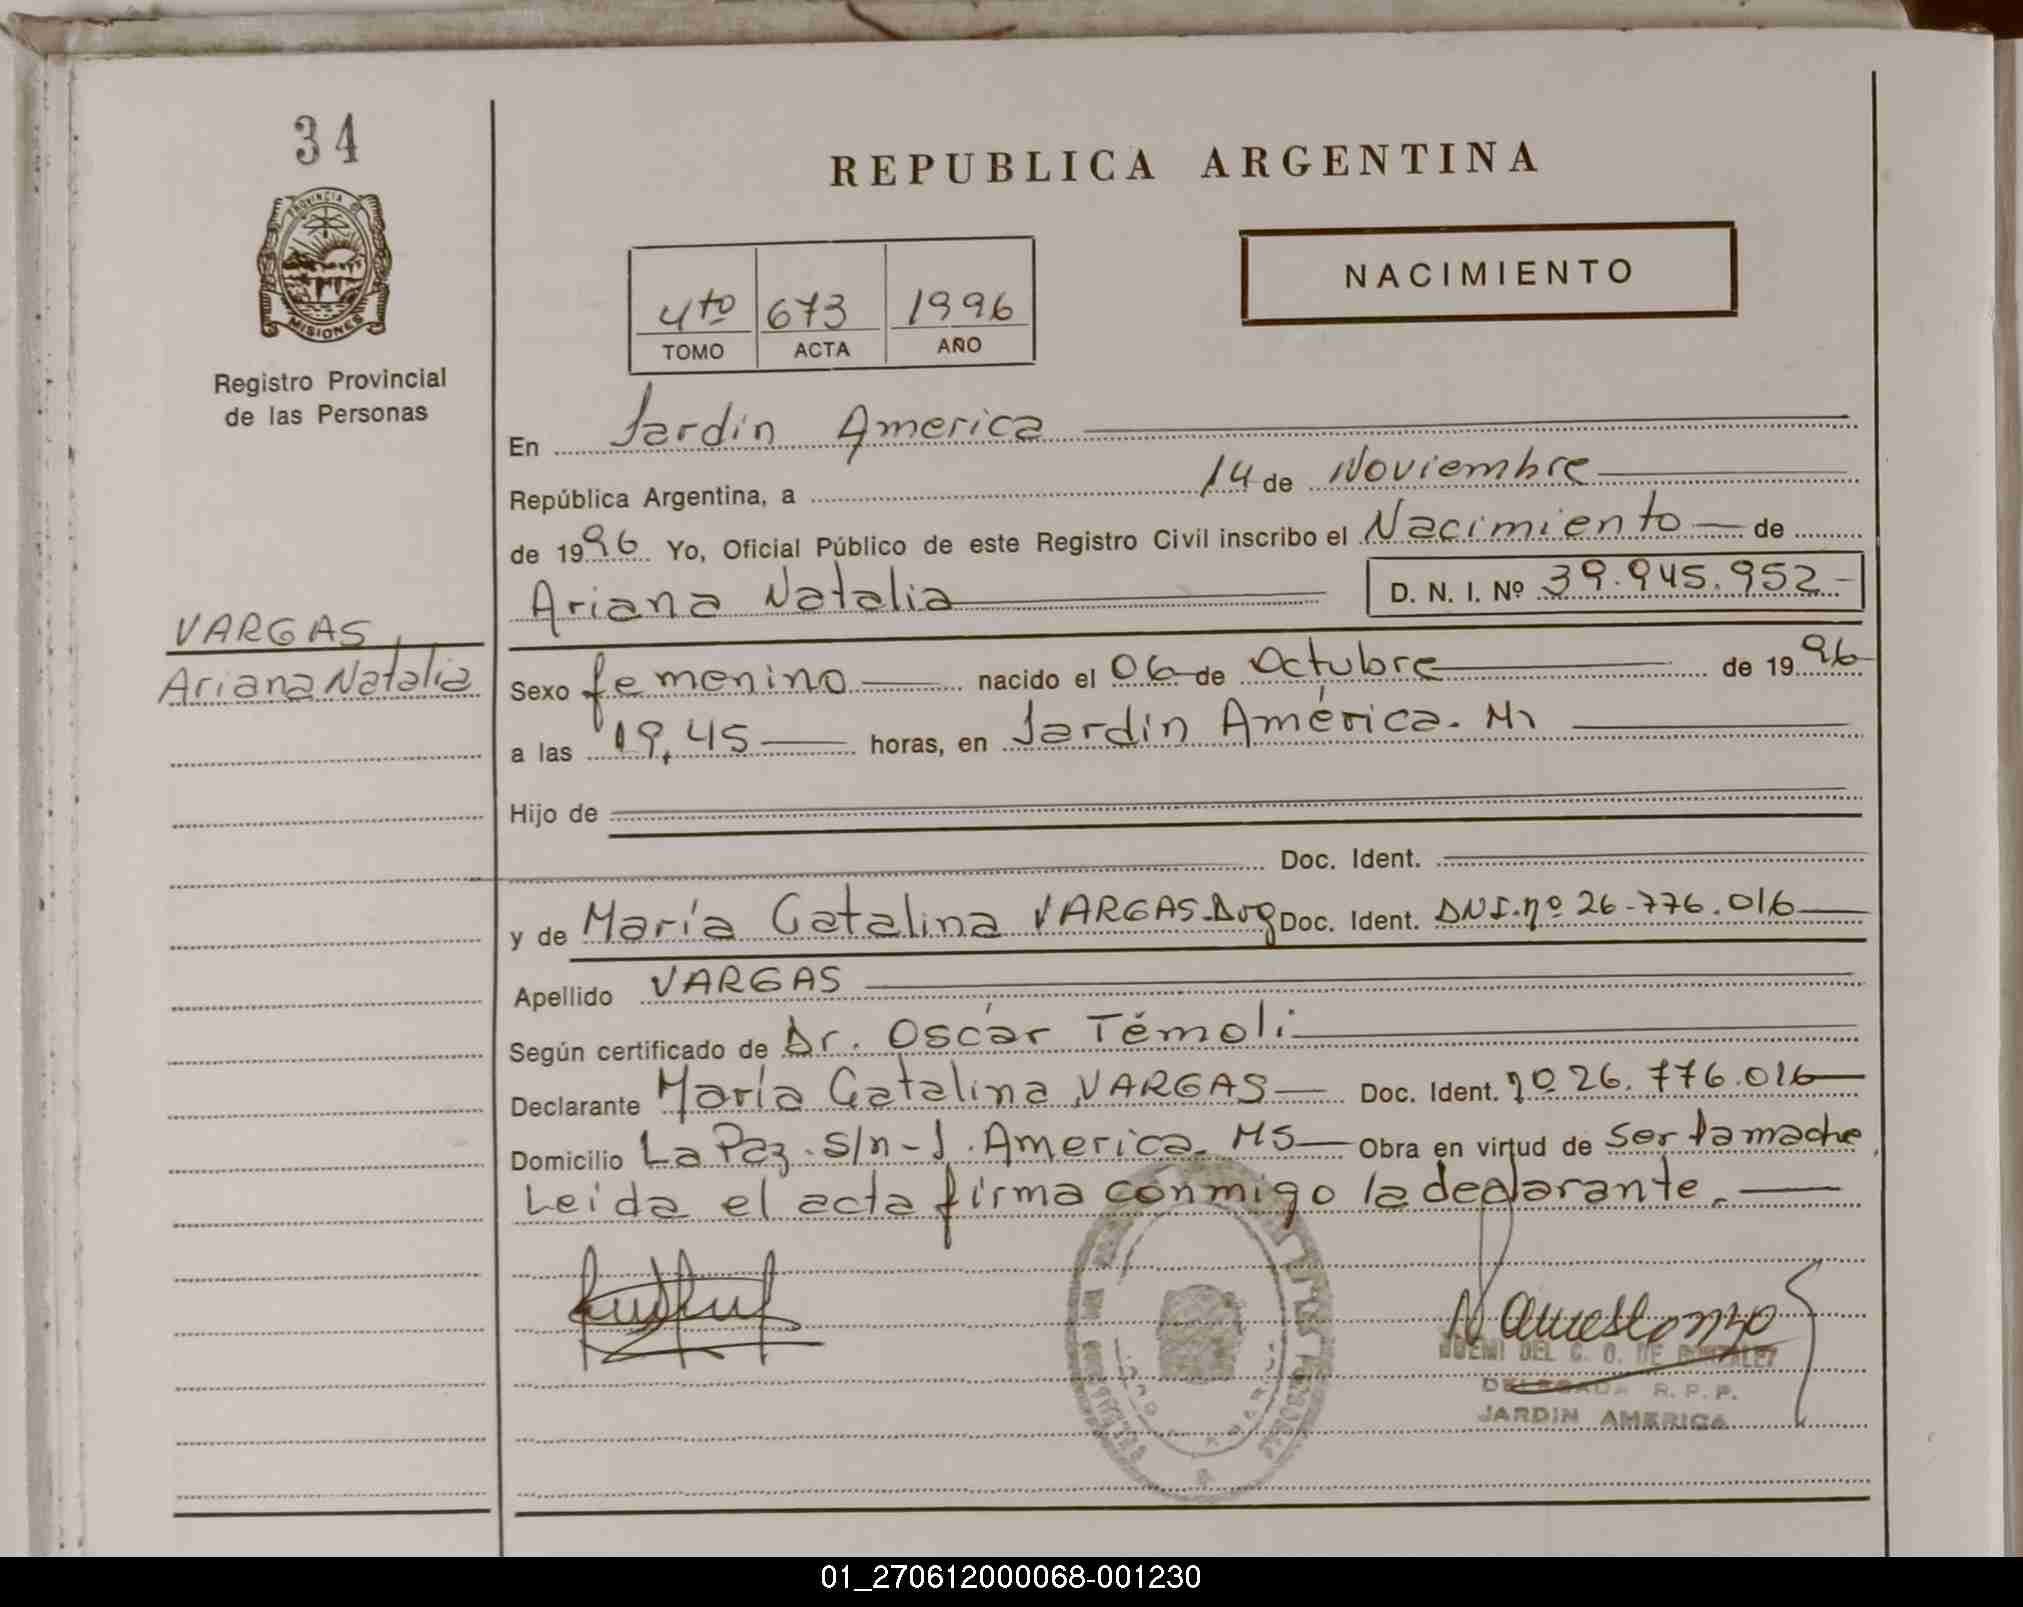 34
REPUBLICA ARGENTINA
PROVINCIA DE
MISIONES
Registro Provincial
de las Personas
NACIMIENTO
4to 673 1996
TOMO ACTA AÑO
En Jardín America
República Argentina, a 14 de Noviembre
de 1996 Yo, Oficial Público de este Registro Civil inscribo el Nacimiento de
Ariana Natalia D. N. I. Nº 39.945.952
VARGAS,
Ariana Natalia
Sexo femenino nacido el 06 de Octubre de 1996
a las 19,45 horas, en Jardín América.
Hijo de
Doc. Ident.
y de María Catalina VARGAS. Doc. Ident. DNI.nº 26-776.016
Apellido VARGAS
Según certificado de Dr. Oscar Témoli
Declarante María Catalina VARGAS Doc. Ident. nº 26.776.016
Domicilio La Paz. s/n - J. America. MS Obra en virtud de ser la madre,
Leida el acta firma conmigo la declarante.
DEL C. O. DE GONZALEZ
DELEGADA R. P. P.
JARDIN AMERICA
01_270612000068-001230